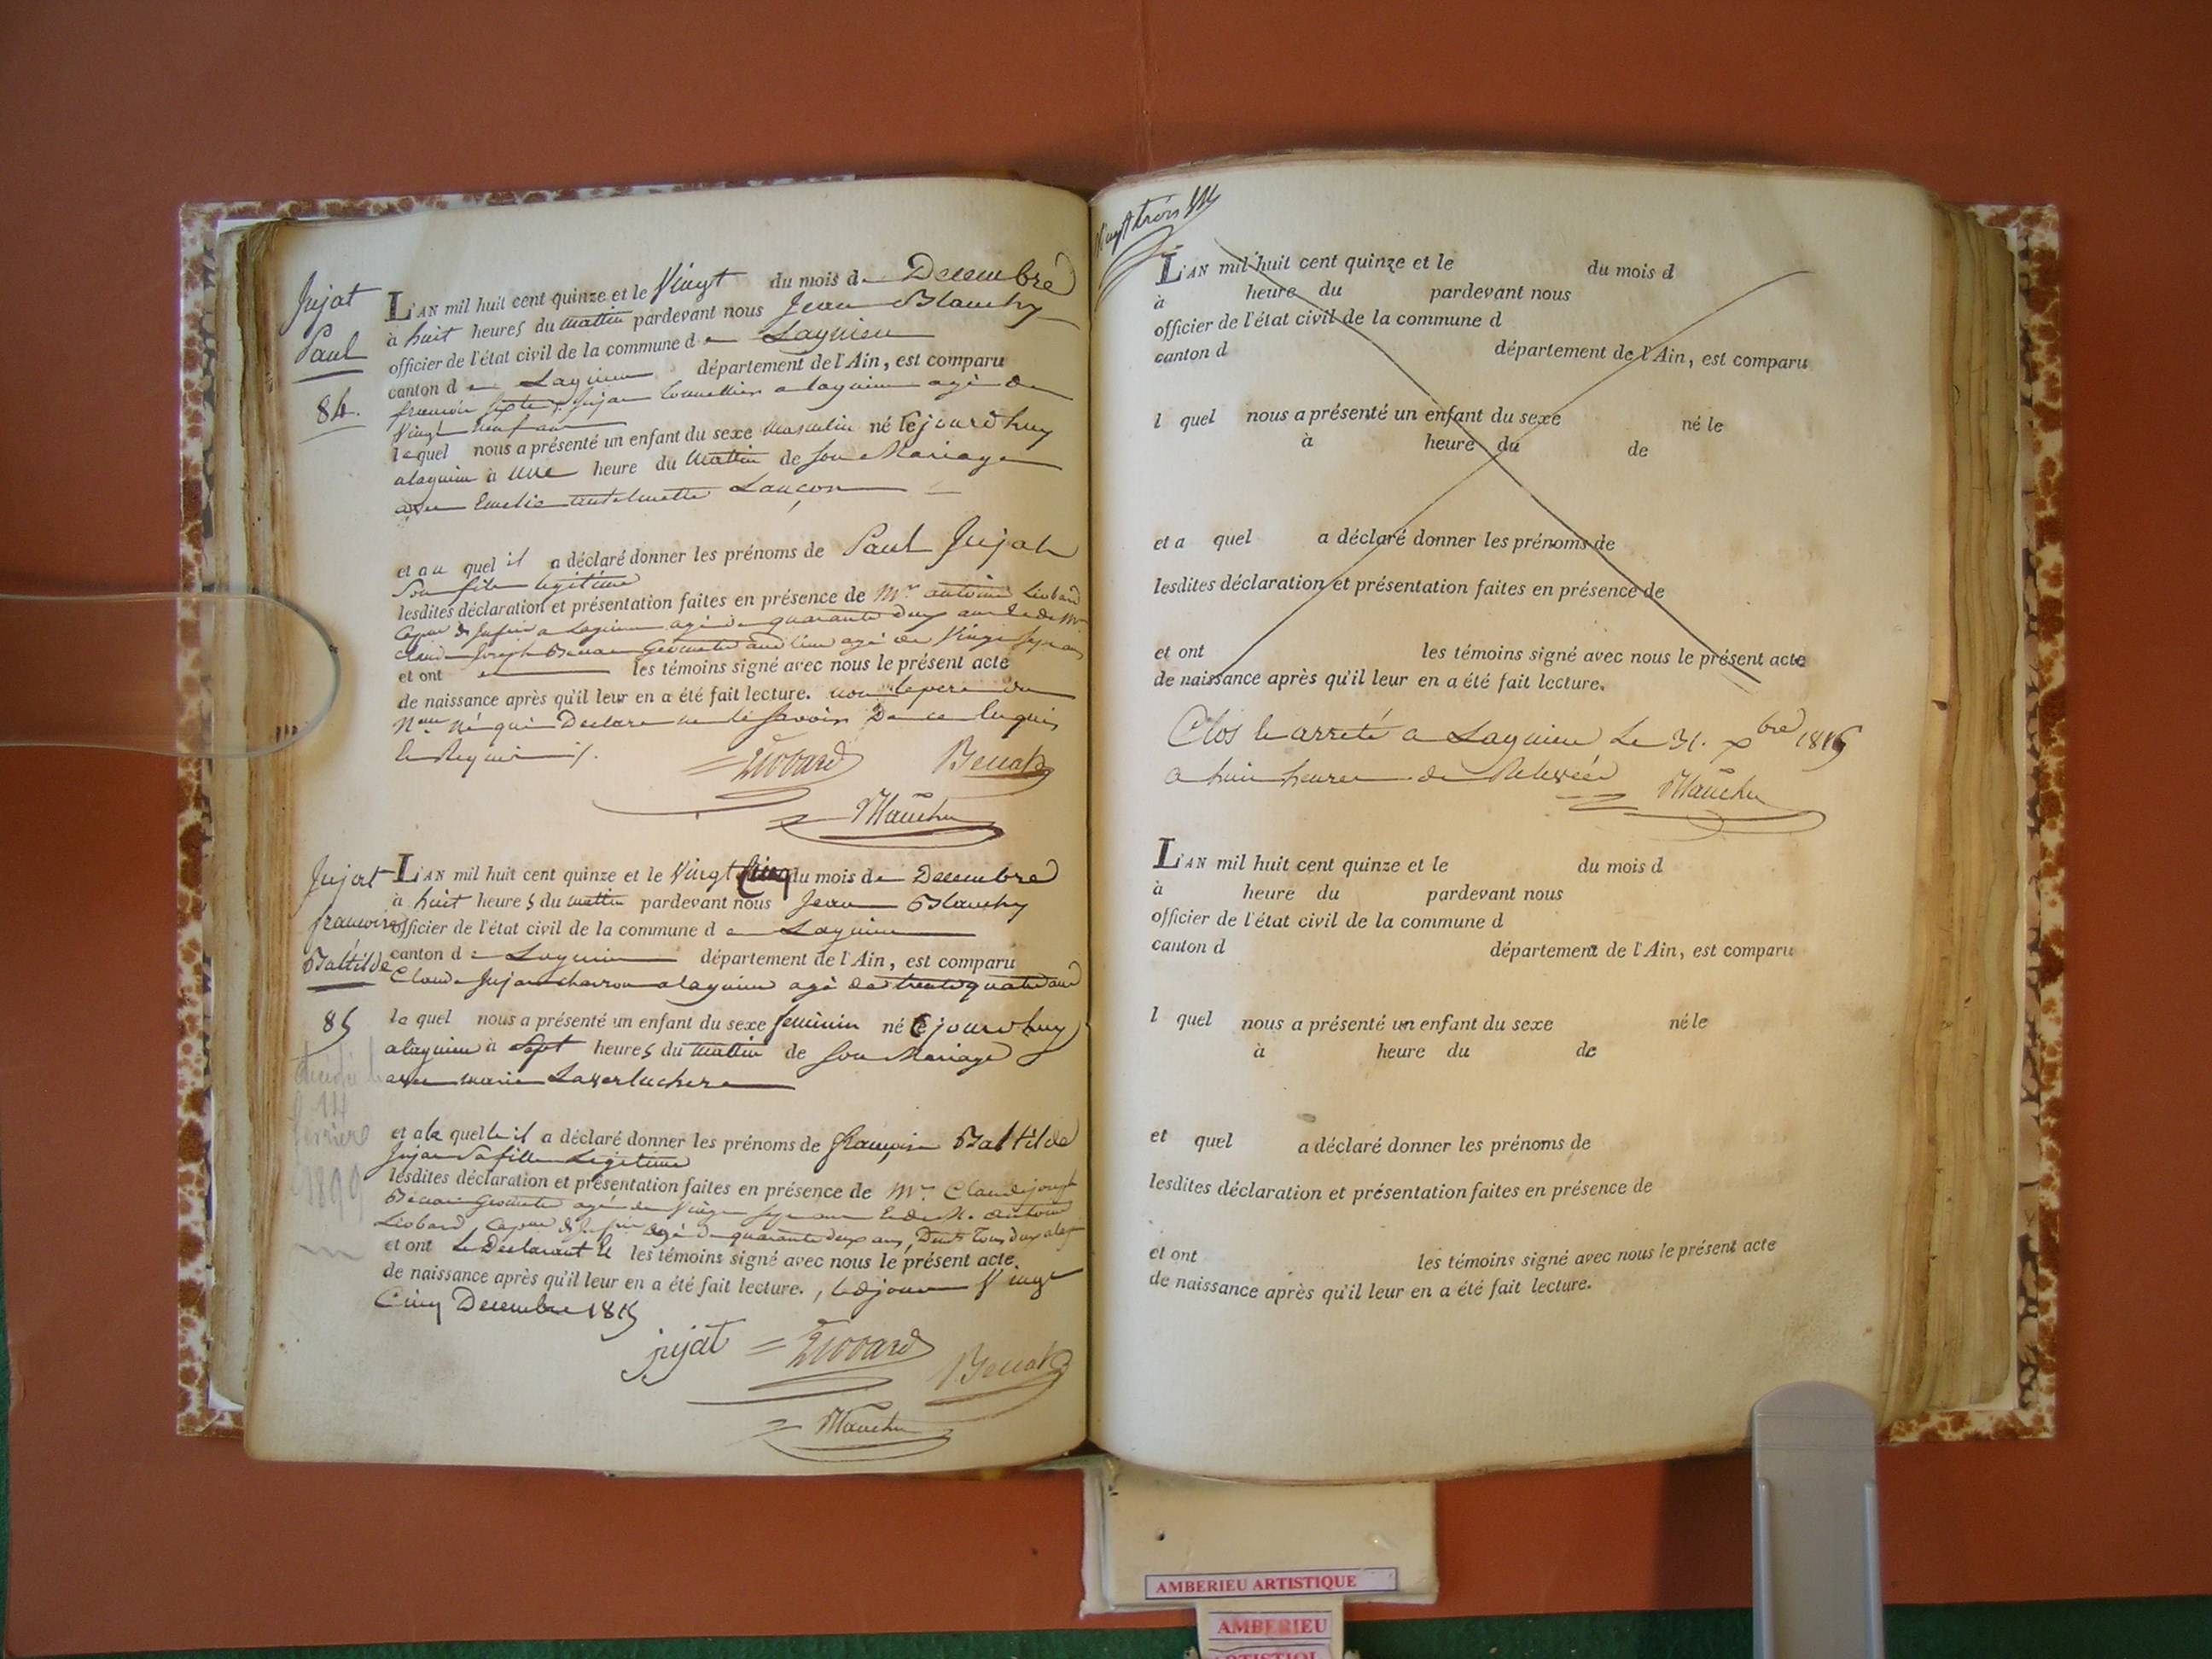 Jujat
Paul
84.
L'AN mil huit cent quinze et le Vingt du mois de Decembre
à huit heures du matin pardevant nous Jean Blanchy
officier de l'état civil de la commune de Lagnieu
canton de Lagnieu département de l'Ain, est comparu
Jujat a lagnieu agé de
Vingt neuf ans
lequel nous a présenté un enfant du sexe masculin né Cejourdhuy
alagnieu à une heure du matin de son Mariage
avec Emelie antelmette Lançon
et au quel il a déclaré donner les prénoms de Paul Jujat
Son fils legitime
lesdites déclaration et présentation faites en présence de Mr antoine Liobard
a Lagnieu agé de quarante deux ans et de Mr
Claude Joseph Benat Geometre audit lieu agé de Vingt sept ans
et ont les témoins signé avec nous le présent acte
de naissance après qu'il leur en a été fait lecture. non le pere du
Nau Né qui Declare ne le Savoir De ce enquis
et Requis
Liobard Benat
Blanchy
Jujat
francoise
Baltilde
85
L'AN mil huit cent quinze et le Vingt Cinq du mois de Decembre
à huit heures du matin pardevant nous Jean Blanchy
officier de l'état civil de la commune de Lagnieu
canton de Lagnieu département de l'Ain, est comparu
Claude Jujat charron a lagnieu agé de trente quatre ans
le quel nous a présenté un enfant du sexe feminin né Cejourdhuy
alagnieu à Sept heures du matin de son Mariage
avec marie Laverluchere
et a la quelle il a déclaré donner les prénoms de françoise Baltilde
Jujat sa fille Legitime
lesdites déclaration et présentation faites en présence de Mr Claude joseph
Benat Geometre agé de Vingt sept ans et de M. antoine
Liobard agé de quarante deux ans, Tous deux
et ont le Declarant et les témoins signé avec nous le présent acte
de naissance après qu'il leur en a été fait lecture., ledit jour Vingt
Cinq Decembre 1815
jujat Liobard Benat
Blanchy
14
fevrier
1899
Vingt trois
L'AN mil huit cent quinze et le du mois d
à heure du pardevant nous
officier de l'état civil de la commune d
canton d département de l'Ain, est comparu
l quel nous a présenté un enfant du sexe né le
à heure du de
et a quel a déclaré donner les prénoms de
lesdites déclaration et présentation faites en présence de
et ont les témoins signé avec nous le présent acte
de naissance après qu'il leur en a été fait lecture.
Clos et arreté a Lagnieu Le 31. xbre 1815
a huit heures de Relevée Blanchy
L'AN mil huit cent quinze et le du mois d
à heure du pardevant nous
officier de l'état civil de la commune d
canton d département de l'Ain, est comparu
l quel nous a présenté un enfant du sexe né le
à heure du de
et quel a déclaré donner les prénoms de
lesdites déclaration et présentation faites en présence de
et ont les témoins signé avec nous le présent acte
de naissance après qu'il leur en a été fait lecture.
AMBERIEU ARTISTIQUE
AMBERIEU